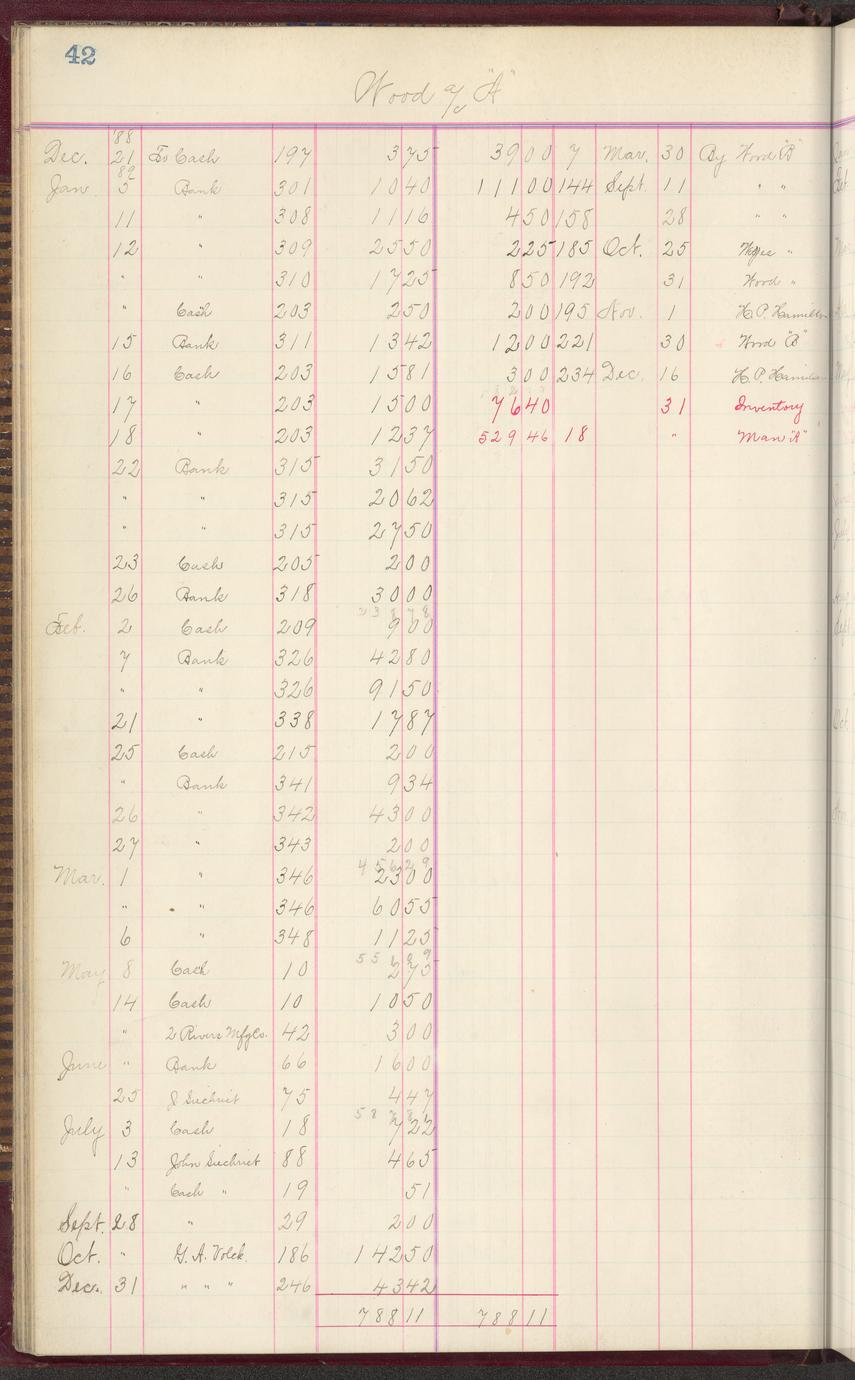 42
Wood a/c "A"
'88
Dec. 21 To Cash 197 3 75 39 00 7 Mar. 30 By Wood "B"
89
Jan 5 Bank 301 10 40 111 00 144 Sept. 11 " "
11 " 308 11 16 4 50 158 28 " "
12 " 309 25 50 2 25 185 Oct. 25 "
" " 310 17 25 8 50 192 31 Wood "
" Cash 203 2 50 2 00 195 Nov. 1 H.P. Hamilton
15 Bank 311 13 42 12 00 221 30 Wood "B"
16 Cash 203 15 81 3 00 234 Dec. 16 H.P. Hamilton
17 " 203 15 00 76 40 31 Inventory
18 " 203 12 37 529 46 18 " Man "A"
22 Bank 315 31 50
" " 315 20 62
" " 315 27 50
23 Cash 205 2 00
26 Bank 318 30 00
238 78
Feb. 2 Cash 209 9 00
7 Bank 326 42 80
" " 326 91 50
21 " 338 17 87
25 Cash 215 2 00
" Bank 341 9 34
26 " 342 43 00
27 " 343 2 00
456 29
Mar. 1 " 346 23 00
" " 346 60 55
6 " 348 11 25
May 8 Cash 10 2 75
14 Cash 10 10 50
" 2 Rivers Mfg Co. 42 3 00
June " Bank 66 16 00
25 J Suchrist 75 4 47
July 3 Cash 18 7 22
13 John Suchrist 88 4 65
" Cash " 19 51
Sept. 28 " 29 2 00
Oct. " G. A. Volck 186 142 50
Dec. 31 " " " 246 43 42
788 11 788 11